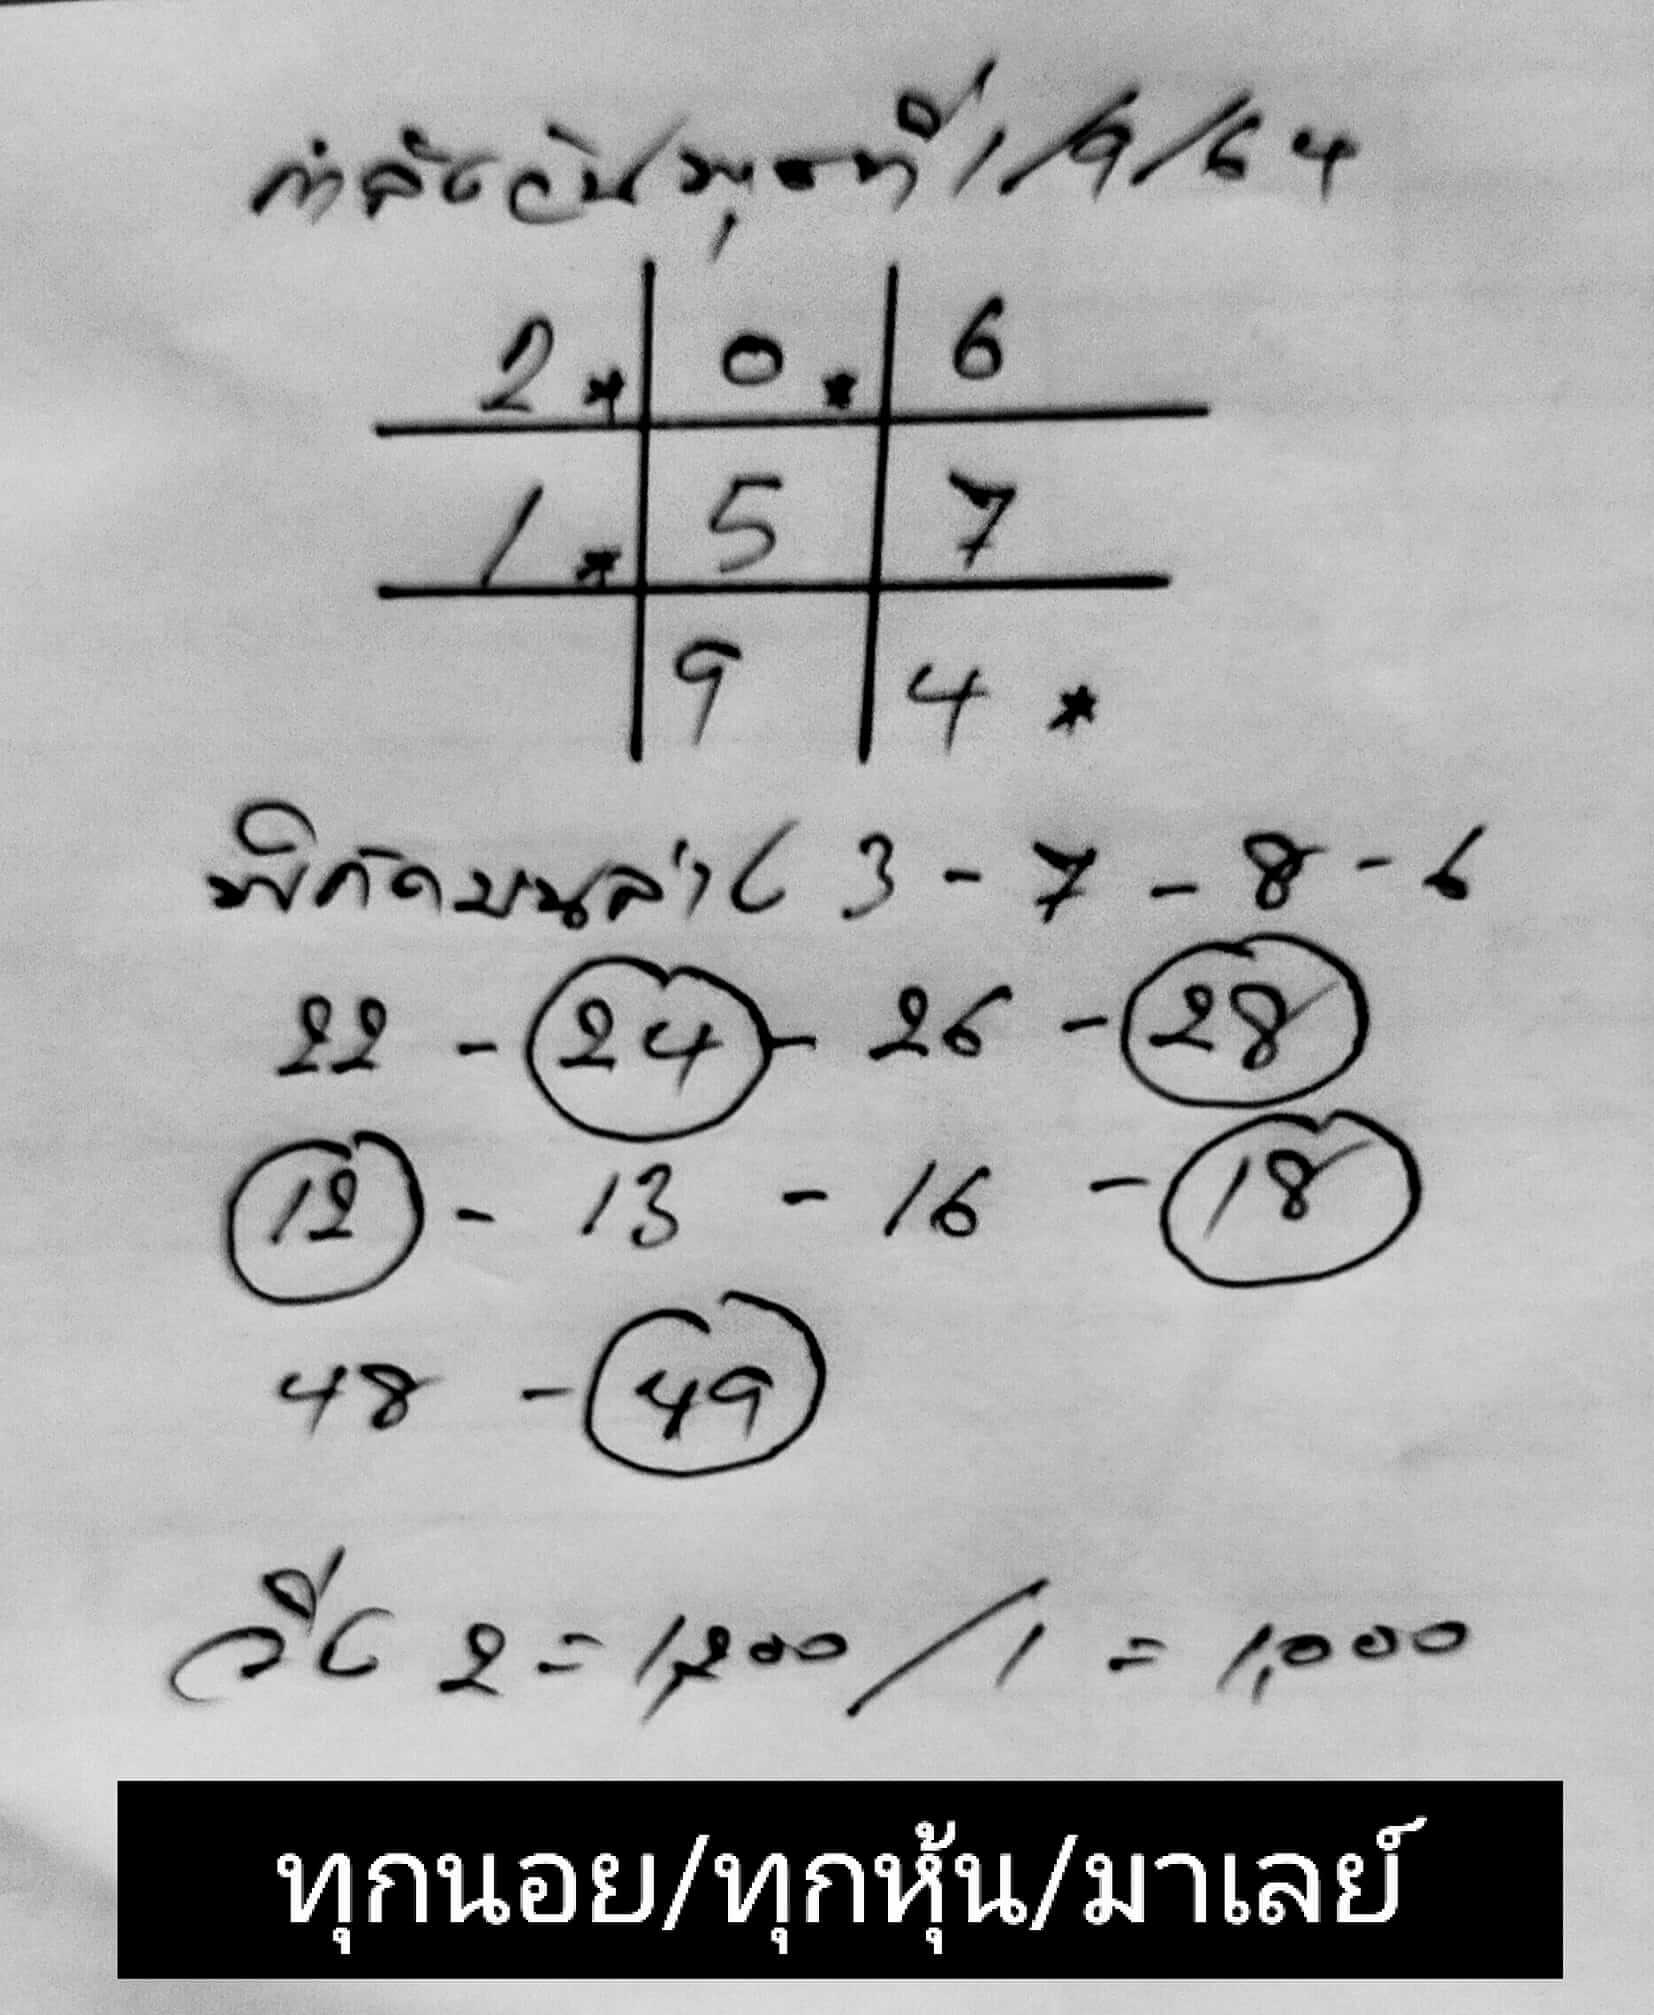 กำลังวันพุธที่ 1/9/64
2* 0* 6
1* 5 7
9 4*
พิกัดบนล่าง 3-7-8-6
22-24-26-28
12-13-16-18
48-49
วิ่ง 2=1,200/1=1,000
ทุกนอย/ทุกหุ้น/มาเลย์